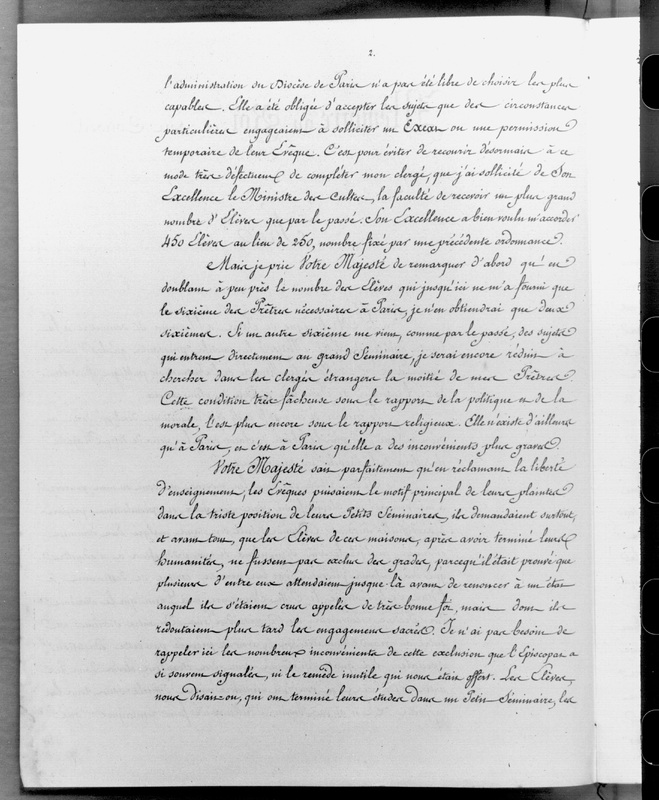 2.
l'administration du Diocèse de Paris n'a pas été libre de choisir les plus
capables. Elle a été obligée d'accepter les sujets que des circonstances
particulières engageaient à solliciter un Exeat ou une permission
temporaire de leur Evêque. C'est pour éviter de recourir désormais à ce
mode très défectueux de compléter mon clergé, que j'ai sollicité de Son
Excellence le Ministre des Cultes, la faculté de recevoir un plus grand
nombre d'Elèves que par le passé. Son Excellence a bien voulu m'accorder
450 Elèves au lieu de 250, nombre fixé par une précédente ordonnance.
Mais je prie Votre Majesté de remarquer d'abord qu'en
doublant à peu près le nombre des Elèves qui jusqu'ici ne m'a fourni que
le sixième des Prêtres nécessaires à Paris, je n'en obtiendrai que deux
sixièmes. Si un autre sixième me vient, comme par le passé, des sujets
qui entrent directement au grand Séminaire, je serai encore réduit à
chercher dans les clergés étrangers la moitié de mes Prêtres.
Cette condition très fâcheuse sous le rapport de la politique et de la
morale, l'est plus encore sous le rapport religieux. Elle n'existe d'ailleurs
qu'à Paris, et c'est à Paris qu'elle a des inconvénients plus graves.
Votre Majesté sait parfaitement qu'en réclamant la liberté
d'enseignement, les Evêques puisaient le motif principal de leurs plaintes
dans la triste position de leurs Petits Séminaires, ils demandaient surtout,
et avant tout, que les Elèves de ces maisons, après avoir terminé leurs
humanités, ne fussent pas exclus des grades, parcequ'il était prouvé que
plusieurs d'entre eux attendaient jusque là avant de renoncer à un état
auquel ils s'étaient crus appelés de très bonne foi, mais dont ils
redoutaient plus tard les engagements sacrés. Je n'ai pas besoin de
rappeler ici les nombreux inconvénients de cette exclusion que l'Episcopat a
si souvent signalés, ni le remède inutile qui nous était offert. Les Elèves,
nous disait-on, qui ont terminé leurs études dans un Petit Séminaire, les